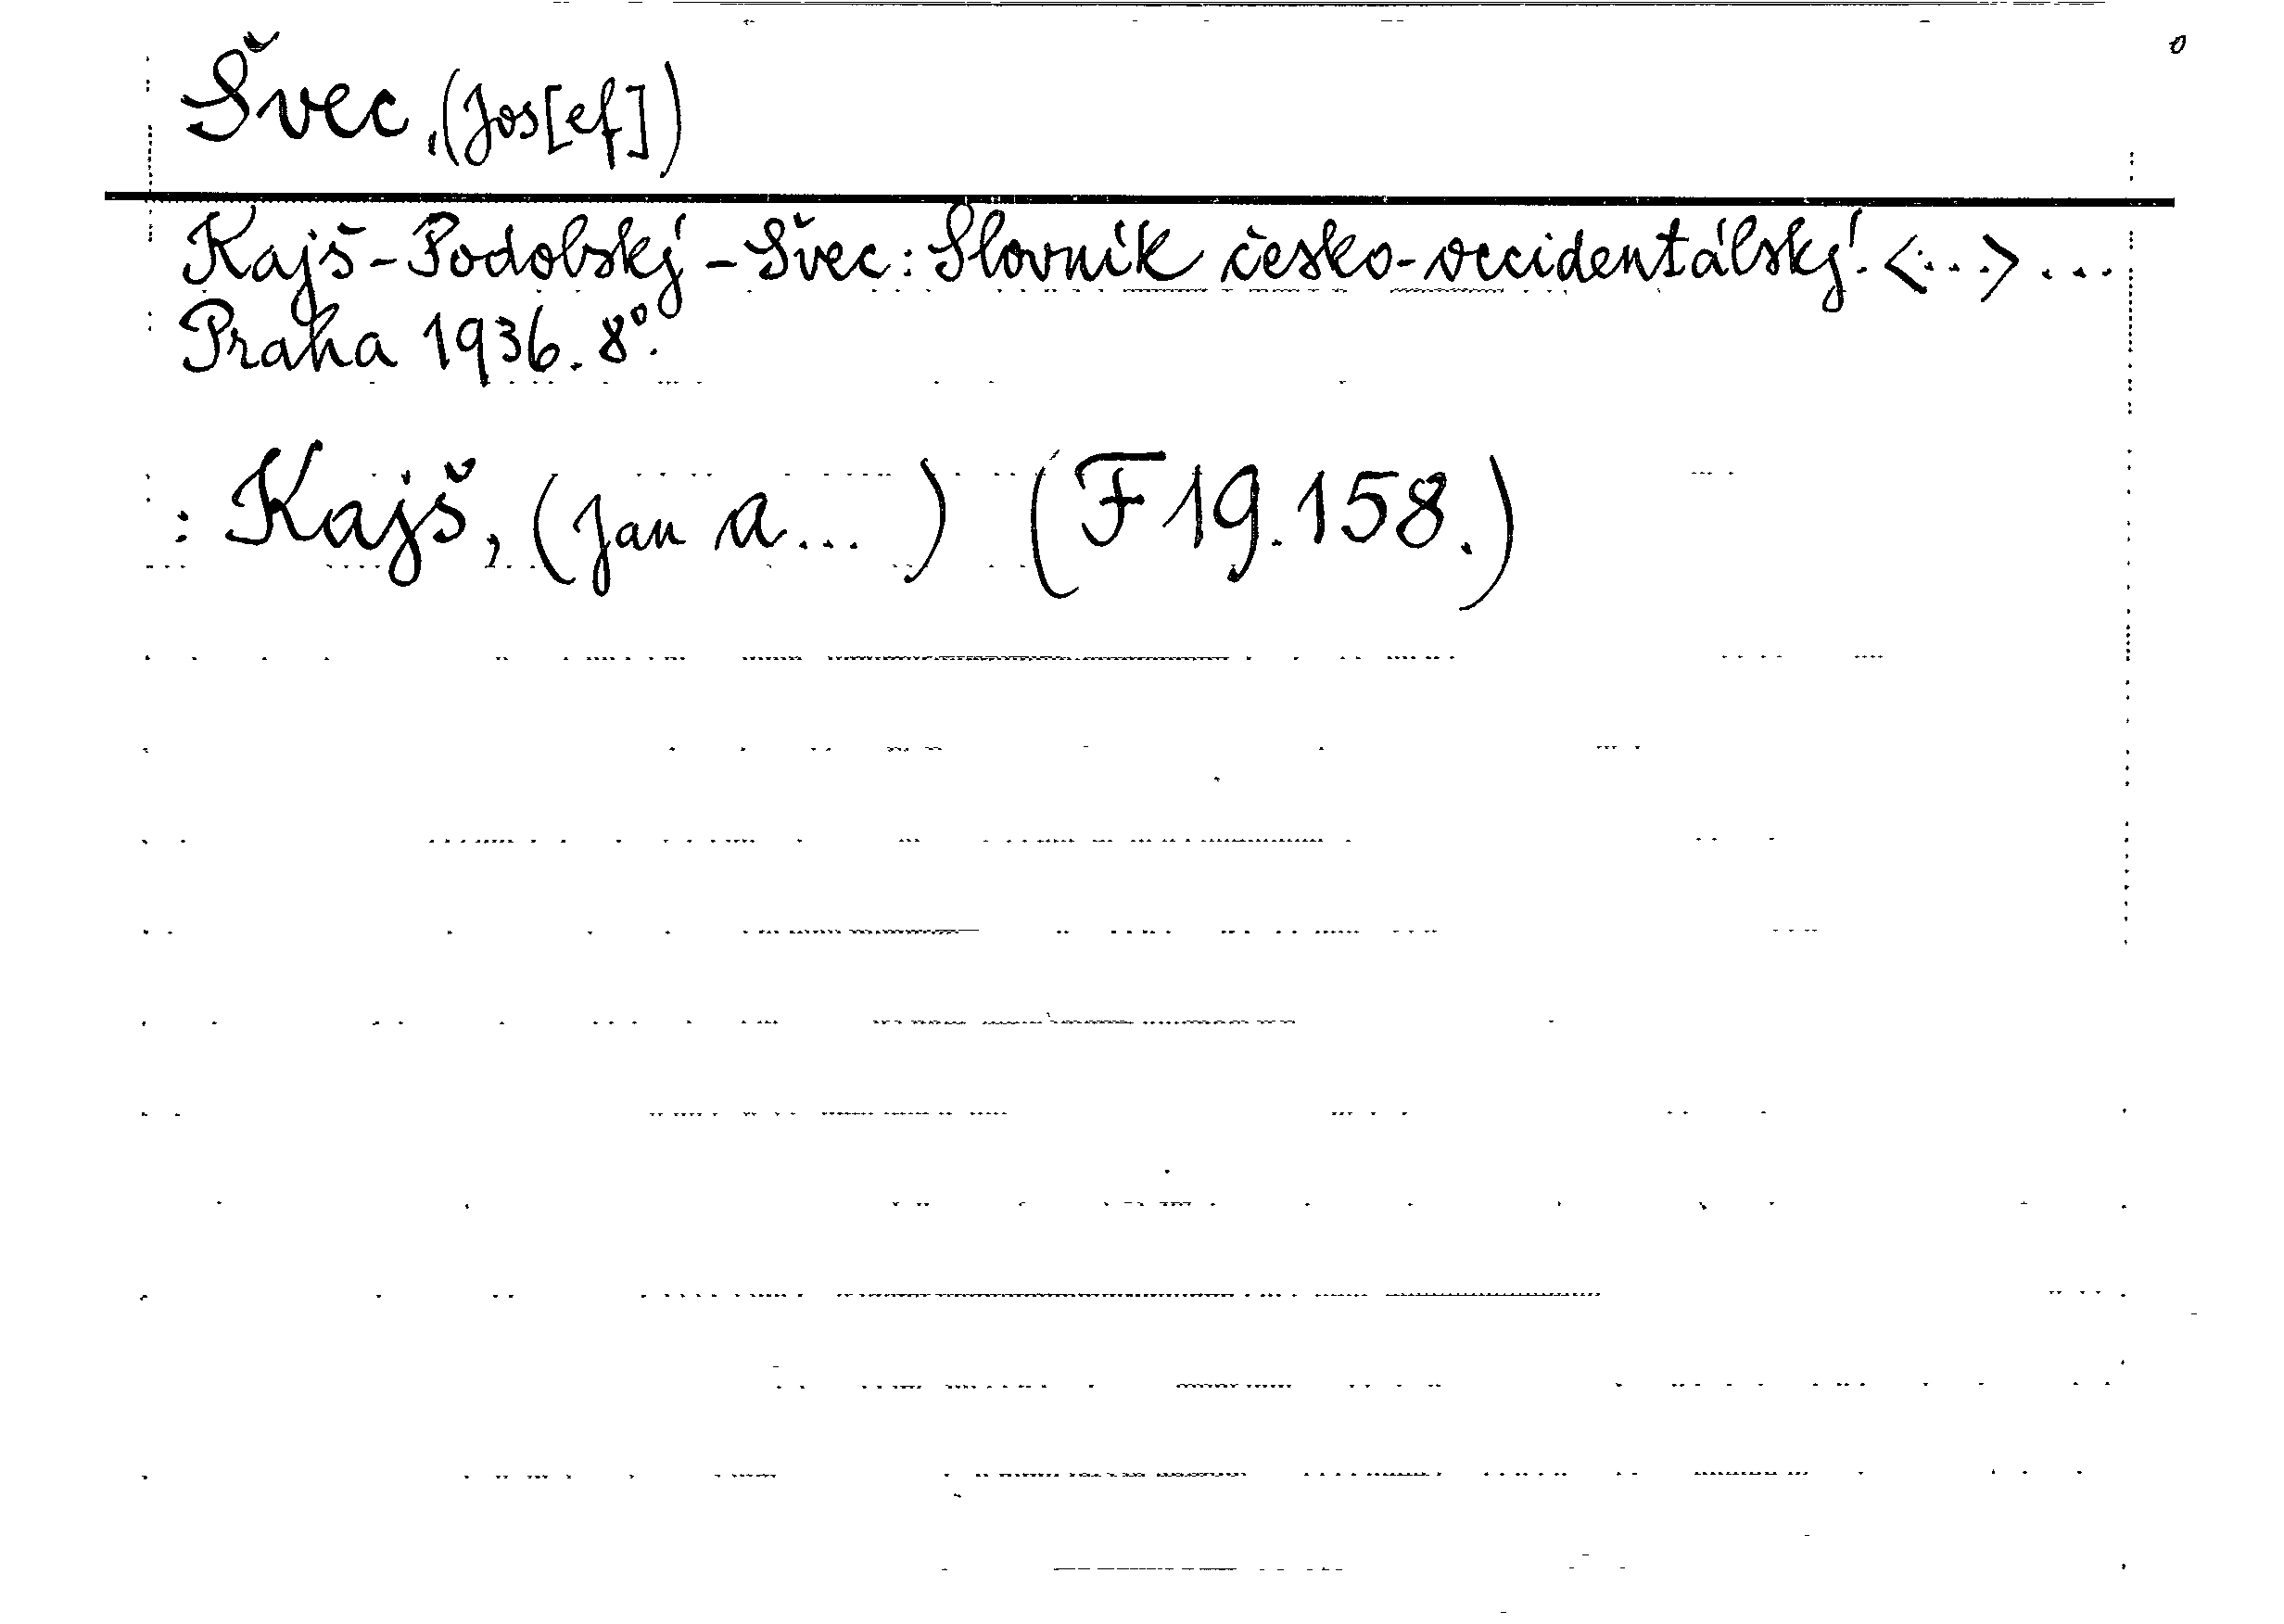 Švec, (Jos[ef])
Kajš-Podobský-Švec: Slovník česko-occidentálský. <...> ...
Praha 1936. 8°.
: Kajš, (Jan A...) (F 19.158.)